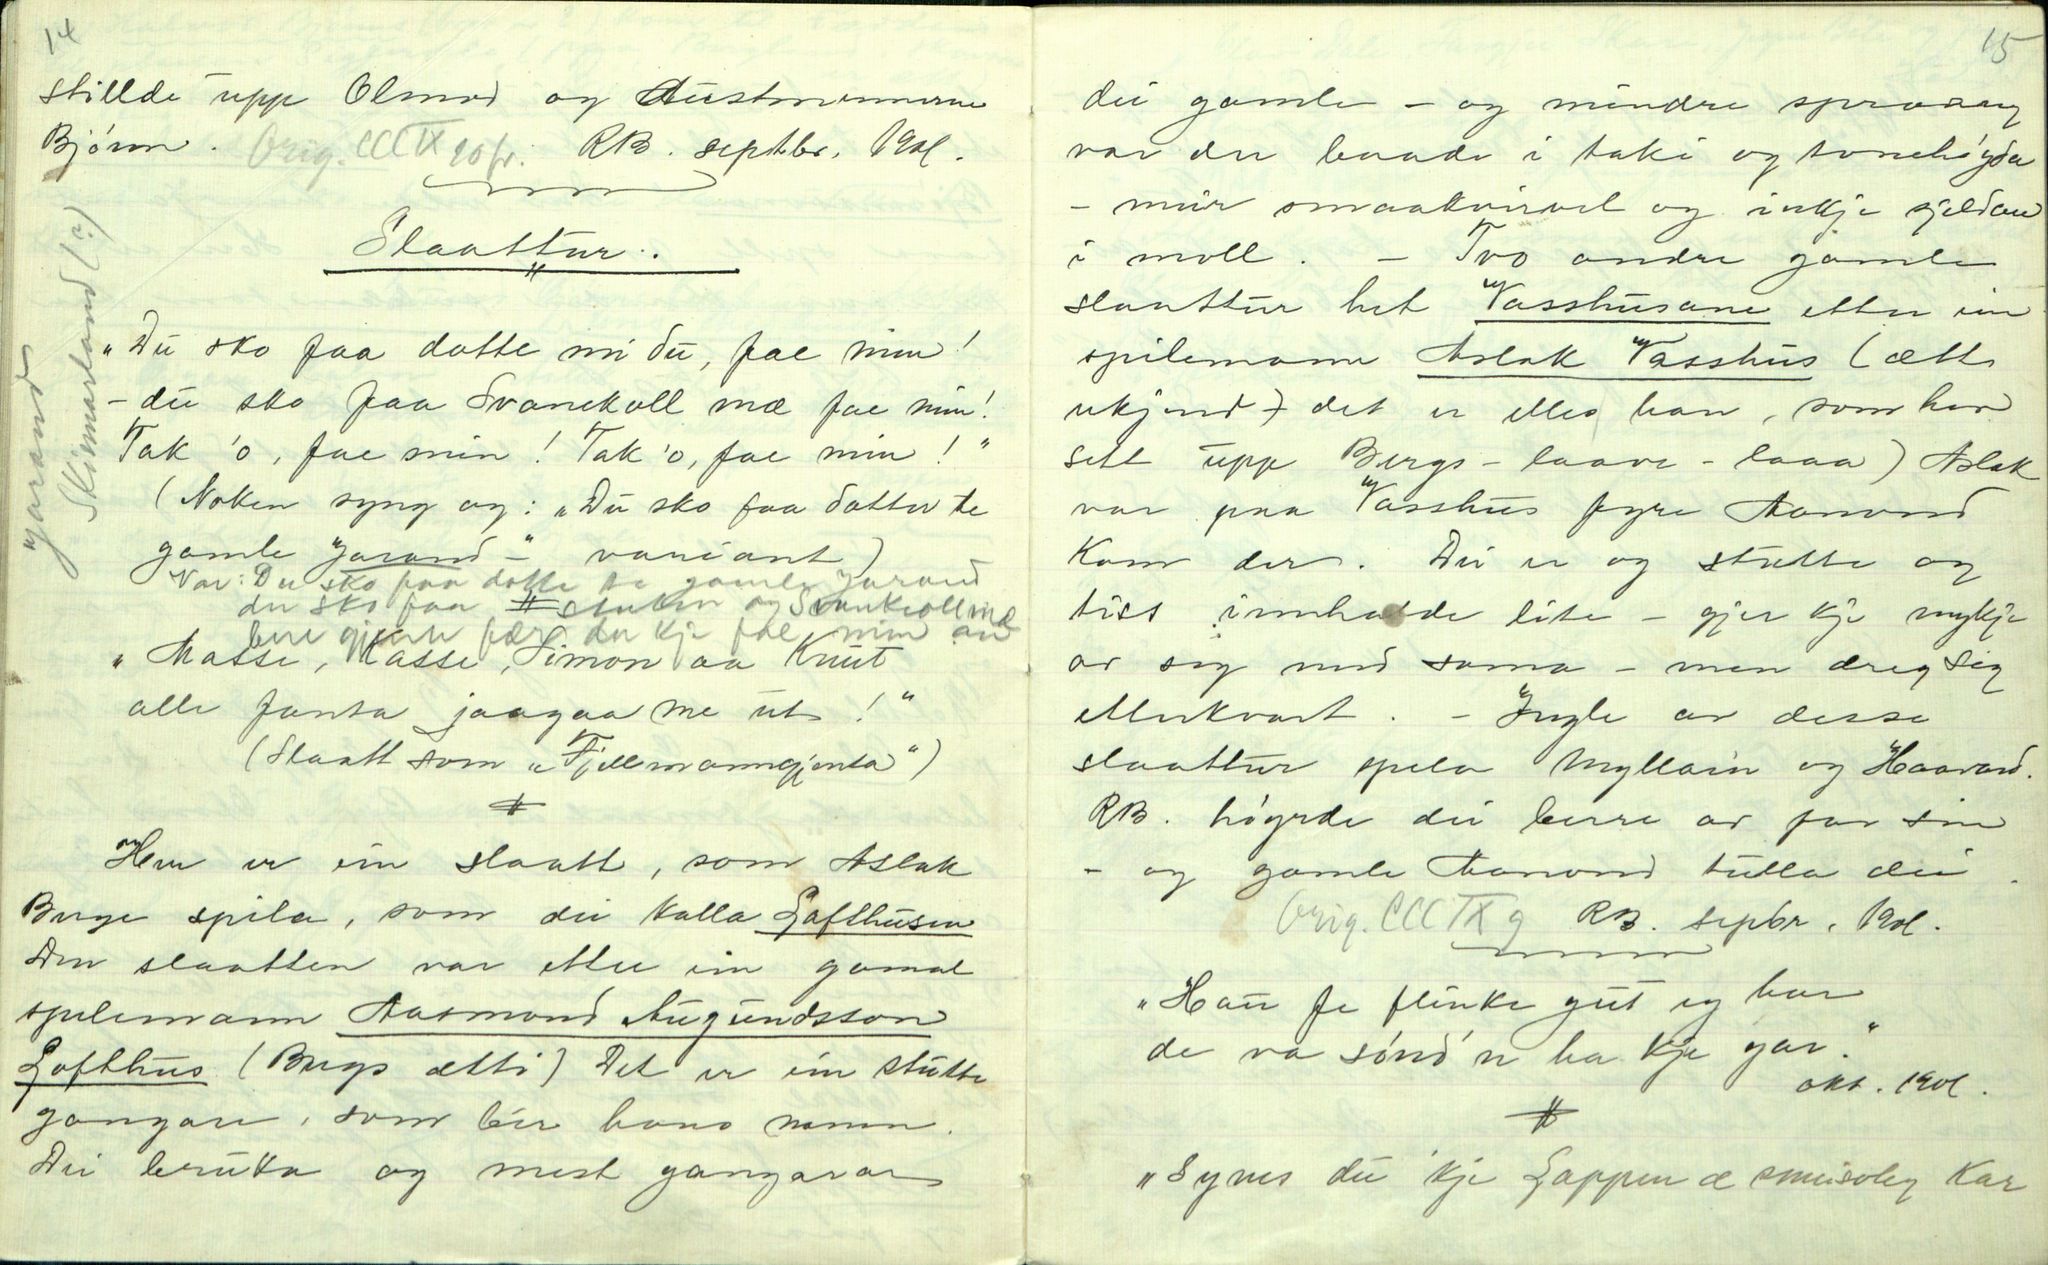 14
stillde upp Olmod og Austmennerne
Bjórn. Orig. CCCIX 90fr. RB. septbr. 1901.
Slaattur.
"Du sko faa dotte mi du, fae min!
- du sko faa Svanekoll mæ fae min!
Tak 'o, fae min! Tak 'o, fae min!"
(Noken syng og: "Du sko faa dotter te
gamle Jarand -" variant)
Var: Du sko faa dotte te gamle Jarand
du sko faa stuten og Svankoll mæ
bere gjente fær du kje fae min
Jarand
Skinnarland (?)
"Masse, Kasse, Simon aa Knut
alle fanta jaagaa me ut!"
(Slaatt som "Fjellmanngjenta")
Her er ein slaatt, som Aslak
Buge spila, som dei kalla Lofthusen
Den slaatten var etter ein gamal
spelemann Aasmond Augundsson
Lofthus (Bugs ætti) Det er ein stutte
gangare, som ber hans namn.
Dei bruka og mest gangarar
15
dei gamle - og mindre sprang
var der baade i taki og tonehøgda
- meir smaakvirvel og inkje sjeldan
i moll. - Tvo andre gamle
slaattur het Vasshusane etter ein
spilemann Aslak Vasshus (ætti
ukjend) det er elles han, som har
sett upp Bergs-laave-laaa) Aslak
var paa Vasshus fyre Aamond
kom der. Dei er og stutte og
tiss innhalde lite - gjer kje mykje
av seg med sama - men dreg seg
etterkvart. - Ingle av desse
slaattur spela Myllarin og Haavard.
RB. høyrde dei berre av far sin
- og gamle Aamond tulla dei.
Orig. CCCIX 9 RB. sepbr. 1901.
"Hau fe flinke gut eg har
de va sónd'n ha kje gar."
okt. 1901.
"Synes du 'kje Lappen æ smeisoleg kar